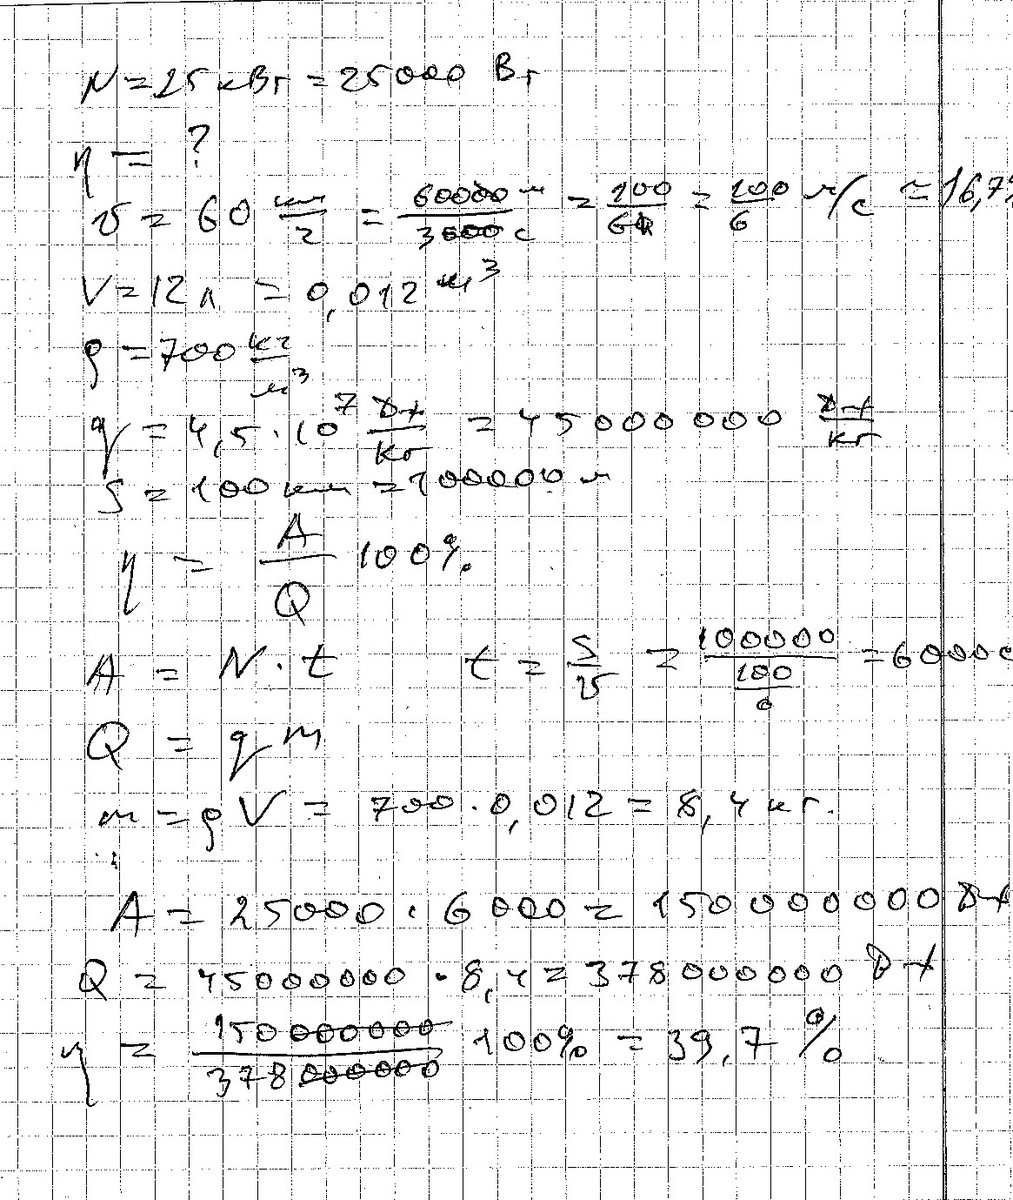 N = 25 кВт = 25000 Вт
η = ?
υ = 60 км/г = 60000 м / 3600 с = 100/6 = 100/6 м/с ≈ 16,7
V = 12 л = 0,012 м³
ρ = 700 кг/м³
q = 4,5 · 10⁷ Дж/кг = 45000000 Дж/кг
S = 100 км = 100000 м
η = A/Q 100%
A = N · t t = S/υ = 100000 / (100/6) = 6000 с
Q = q m
m = ρ V = 700 · 0,012 = 8,4 кг.
A = 25000 · 6000 = 150000000 Дж
Q = 45000000 · 8,4 = 378000000 Дж
η = 150000000 / 378000000 100% = 39,7 %